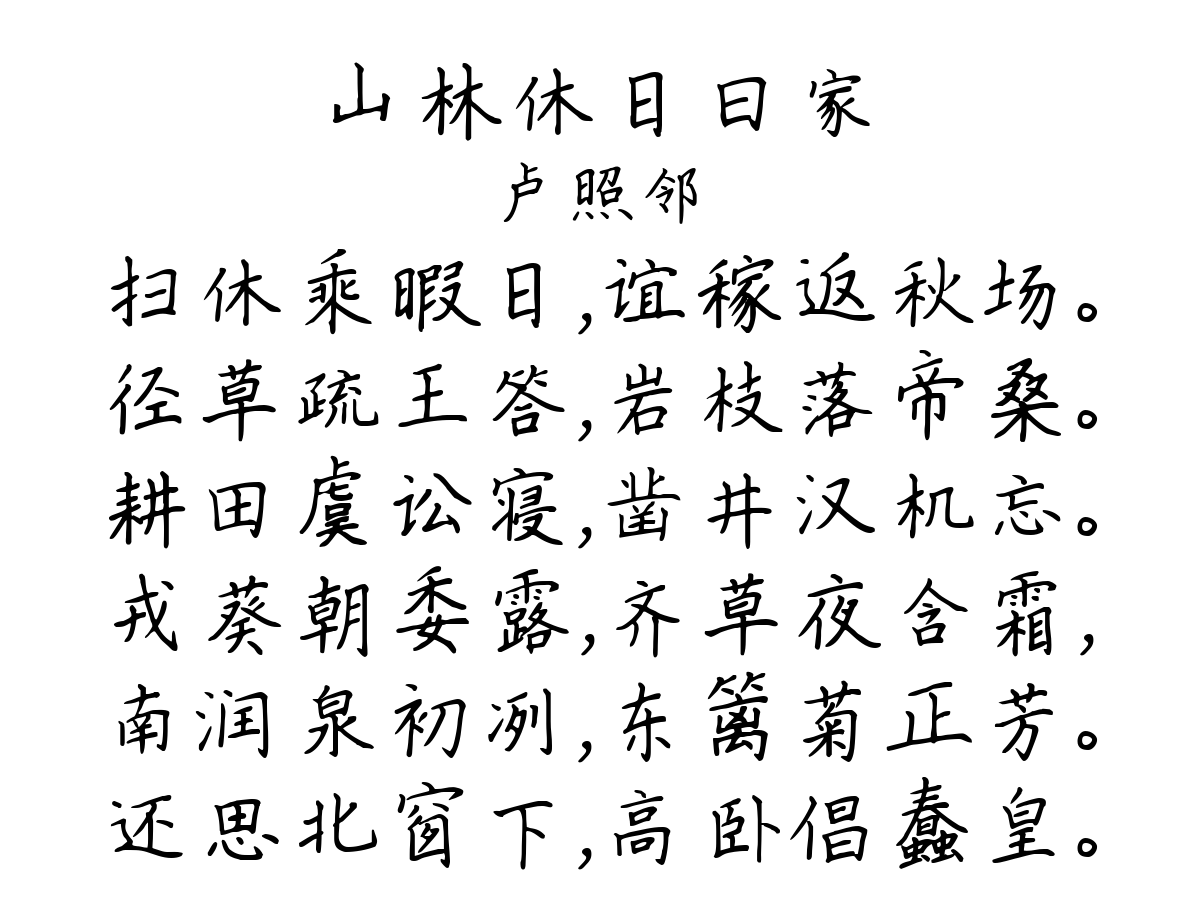 山林休日日家
卢照邻
扫休乘暇日,谊稼返秋场。
径草疏王答,岩枝落帝桑。
耕田虞讼寝,凿井汉机忘。
戎葵朝委露,齐草夜含霜,
南润泉初冽,东篱菊正芳。
还思北窗下,高卧倡蠢皇。